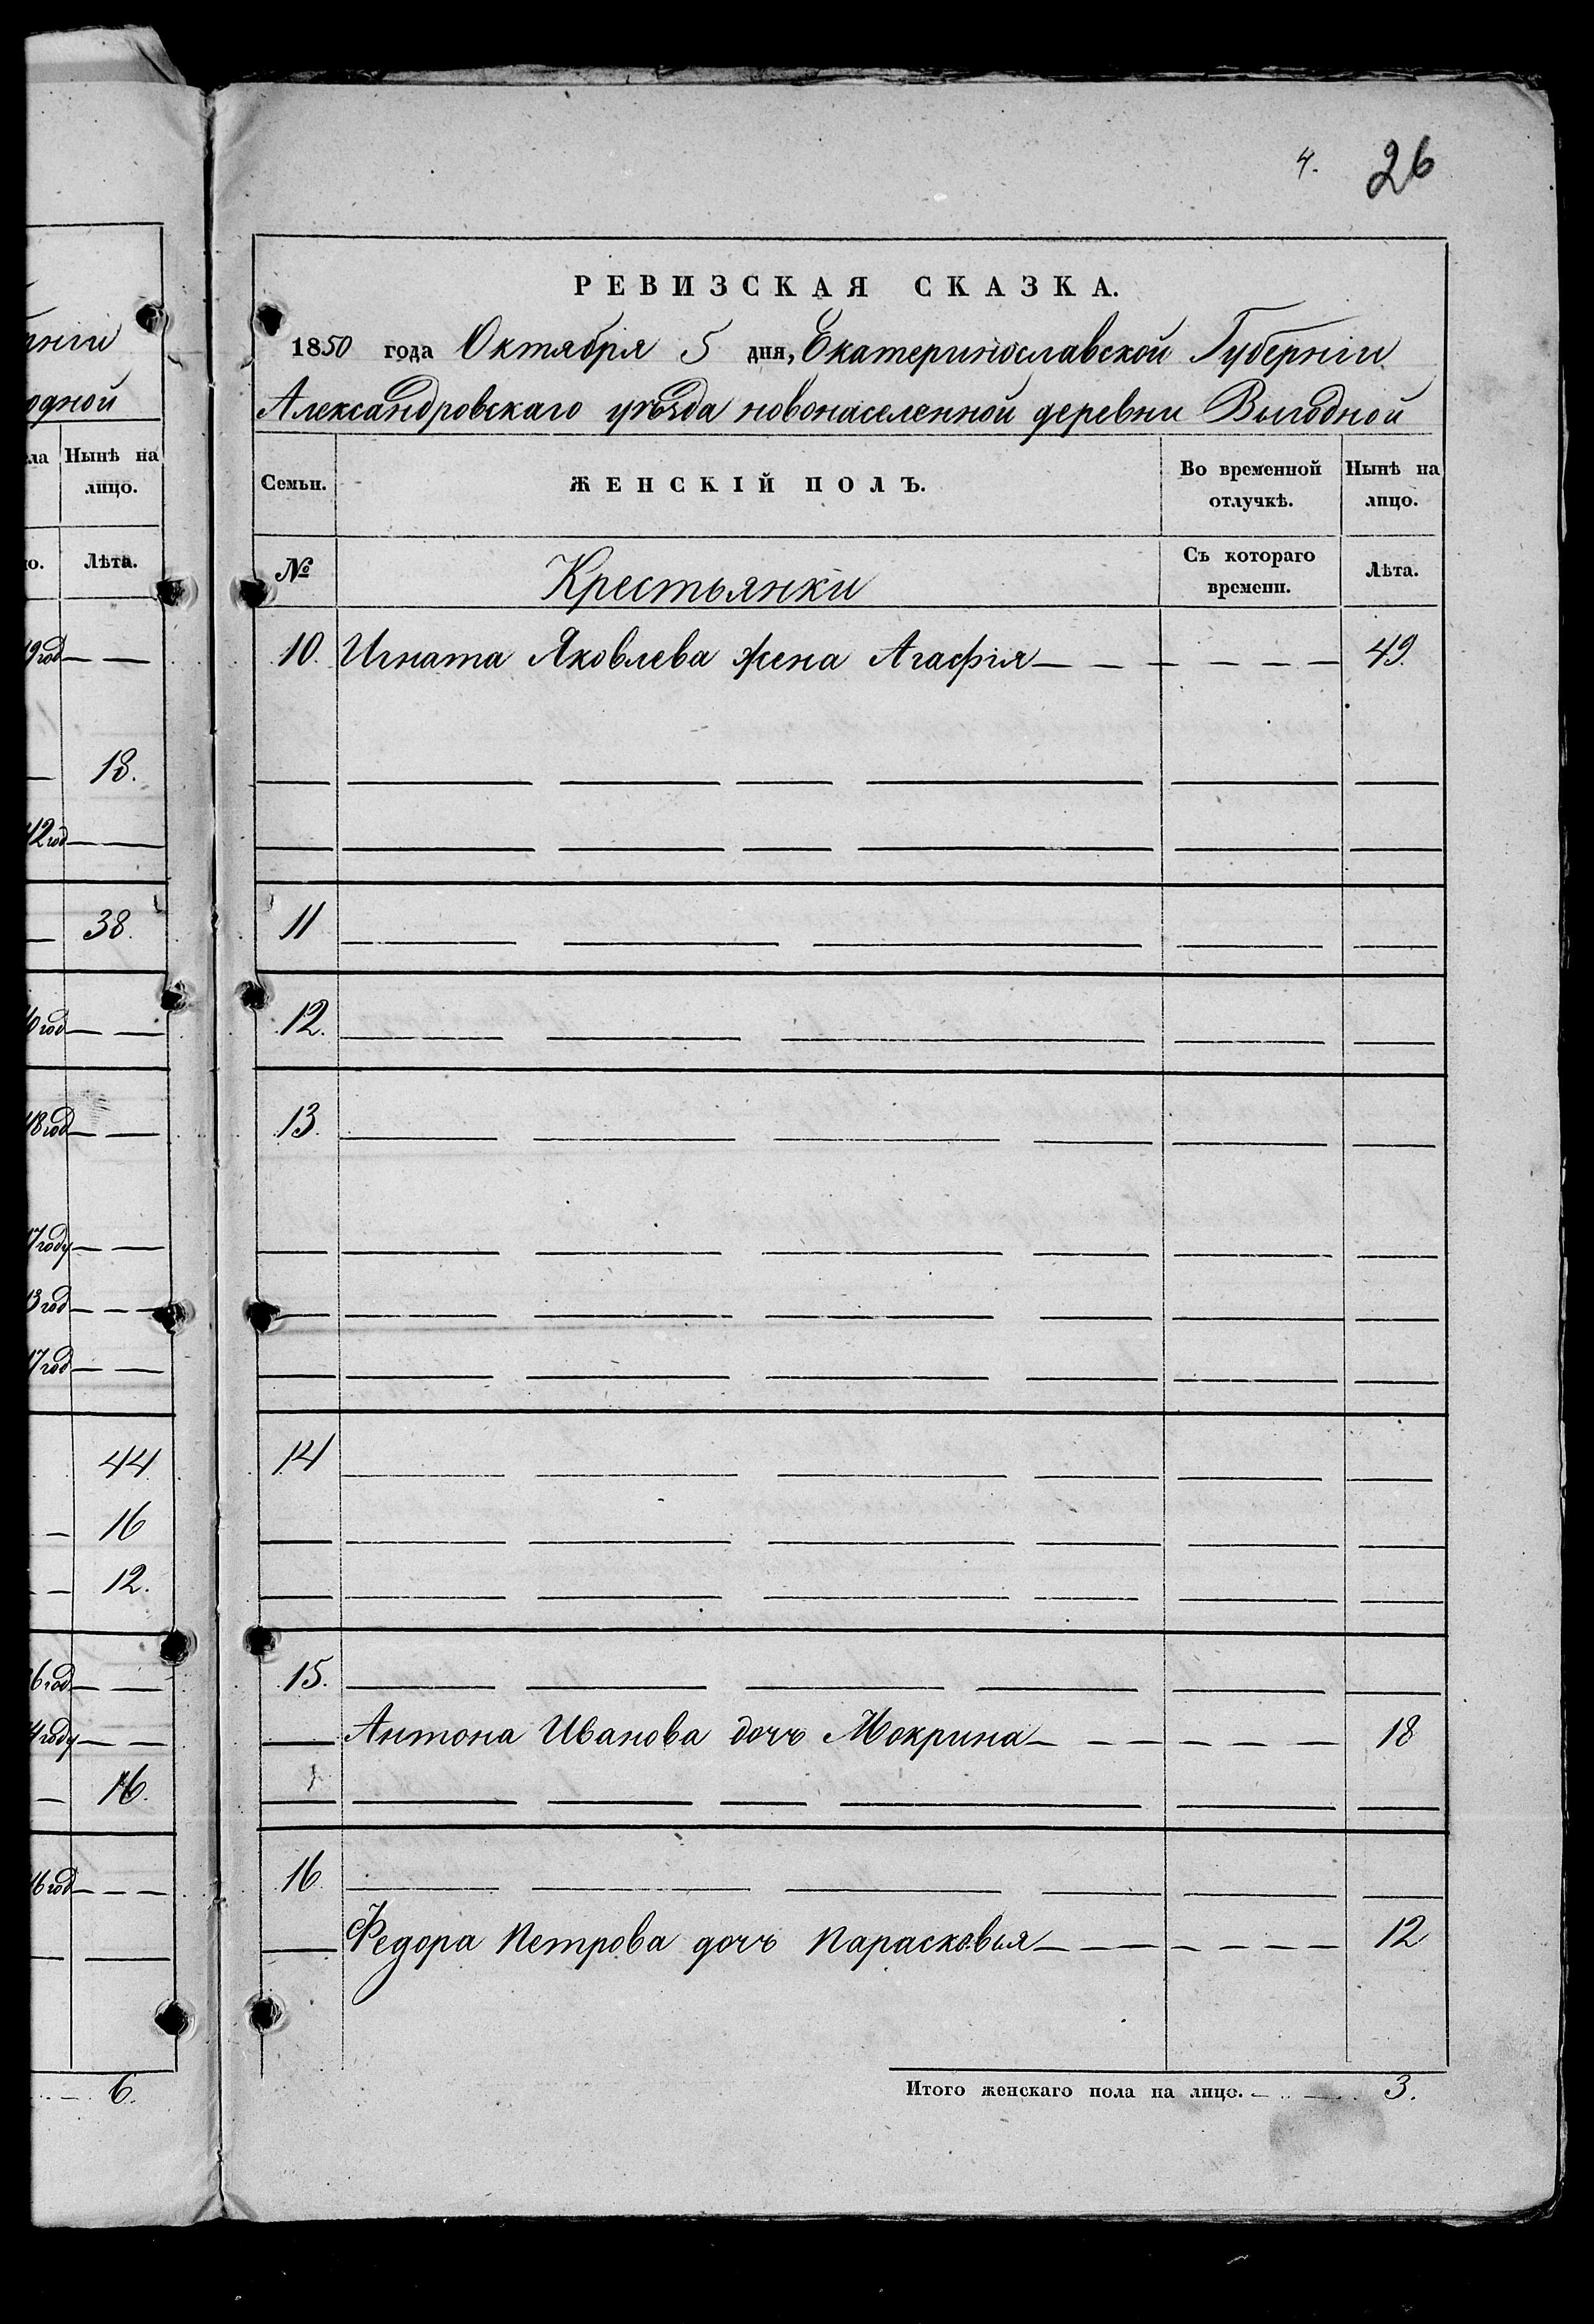 4. 26
РЕВИЗСКАЯ СКАЗКА.
1850 года Октября 5 дня, Екатеринославской Губерніи
Александровскаго уѣзда новонаселенной деревни Выгодной
Семьи. ЖЕНСКІЙ ПОЛЪ. Во временной отлучкѣ. Нынѣ на лицо.
№ Крестьянки Съ котораго времени. Лѣта.
10. Игната Яковлева жена Агафія 49.
11
12.
13.
14
15.
Антона Иванова дочь Мокрина 18
16.
Федора Петрова дочь Парасковья 12
Итого женскаго пола на лицо. 3.
одной
Нынѣ на
лицо.
Лѣта.
18.
38.
44
16
12.
16.
6.